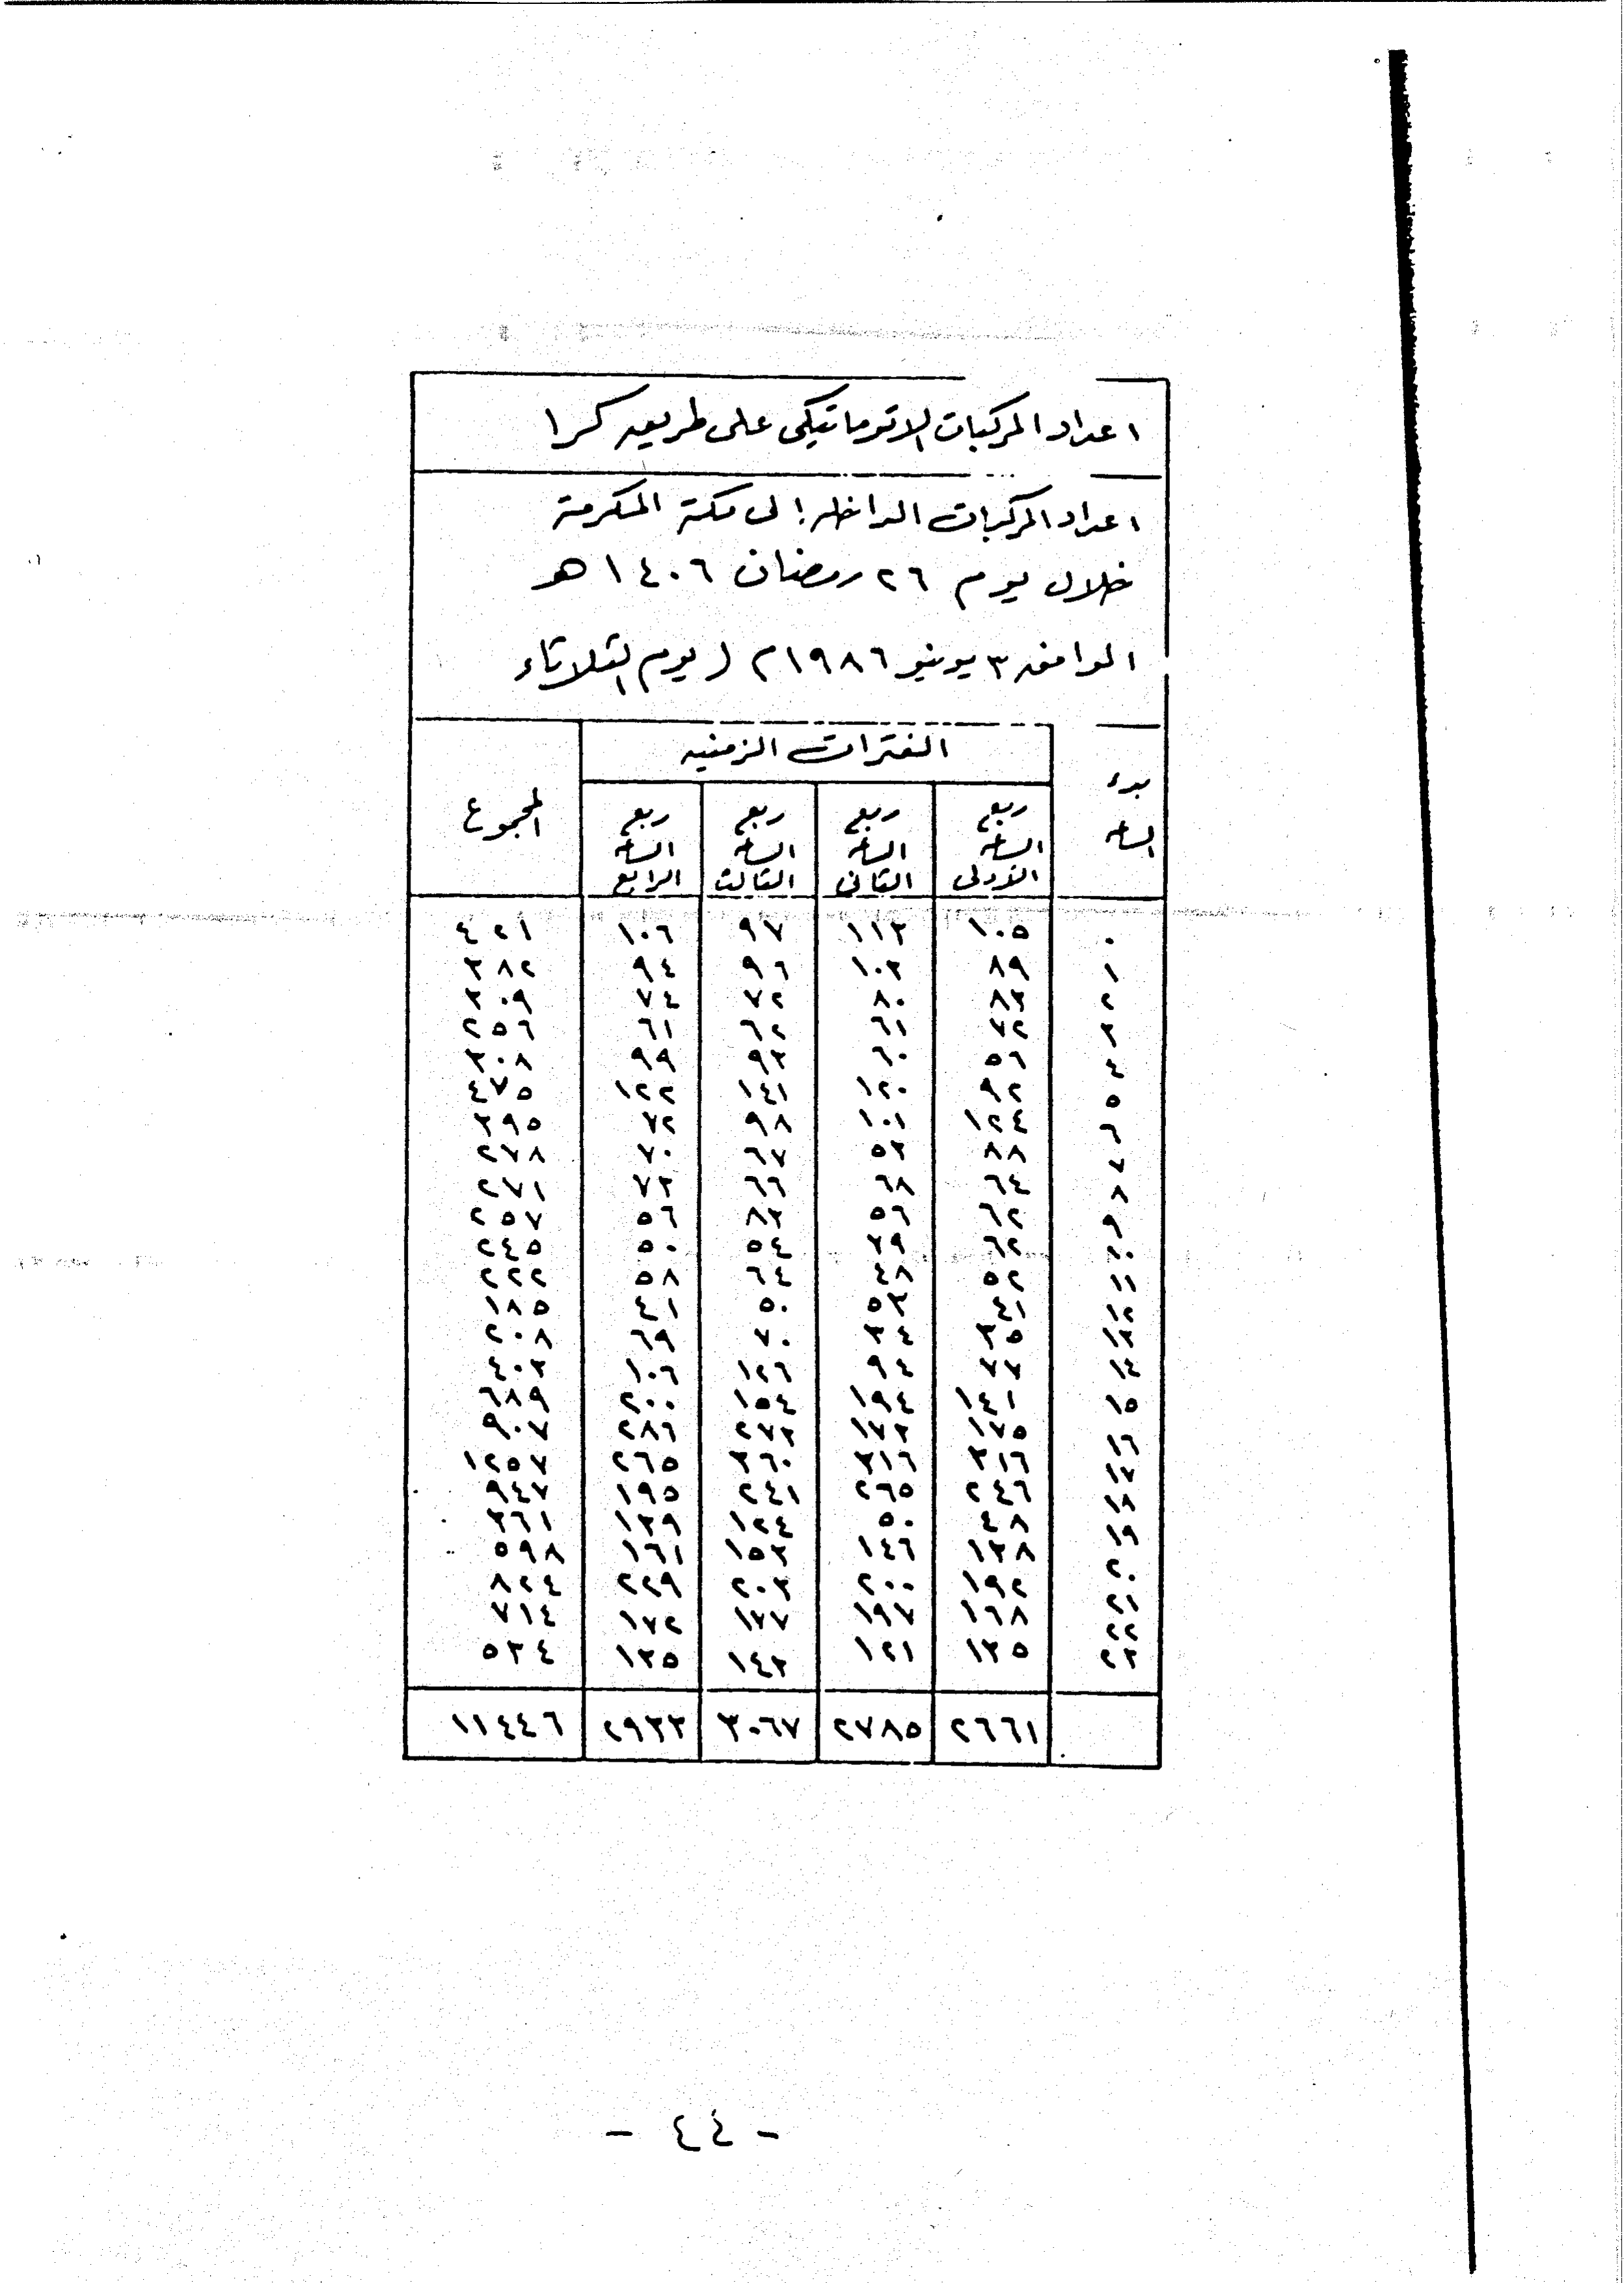 اعداد المركبات الاتوماتيكى على طريق كرا
اعداد المركبات الداخله إلى مكة المكرمة
خلال يوم ٢٦ رمضان ١٤٠٦ هـ
الموافق ٣ يونيو ١٩٨٦م (يوم الثلاثاء
بدء الساعه
الفترات الزمنيه
المجموع
ربع الساعه الاولى
ربع الساعه الثانى
ربع الساعه الثالث
ربع الساعه الرابع
٠ ١٠٥ ١١٣ ٩٧ ١٠٦ ٤٢١
١ ٨٩ ١٠٣ ٩٦ ٩٤ ٣٨٢
٢ ٨٣ ٨٠ ٧٢ ٧٤ ٣٠٩
٣ ٧٢ ٦١ ٦٢ ٦١ ٢٥٦
٤ ٥٦ ٦٠ ٩٣ ٩٩ ٣٠٨
٥ ٩٢ ١٢٠ ١٤١ ١٢٢ ٤٧٥
٦ ١٢٤ ١٠١ ٩٨ ٧٢ ٣٩٥
٧ ٨٨ ٥٣ ٦٧ ٧٠ ٢٧٨
٨ ٦٤ ٦٨ ٦٦ ٧٣ ٢٧١
٩ ٦٢ ٥٦ ٨٣ ٥٦ ٢٥٧
١٠ ٦٢ ٧٩ ٥٤ ٥٠ ٢٤٥
١١ ٥٢ ٤٨ ٦٤ ٥٨ ٢٢٢
١٢ ٤١ ٥٣ ٥٠ ٤١ ١٨٥
١٣ ٣٥ ٣٤ ٧٠ ٦٩ ٢٠٨
١٤ ٧٧ ٩٤ ١٢٦ ١٠٦ ٤٠٣
١٥ ١٤١ ١٩٤ ١٥٤ ٢٠٠ ٦٨٩
١٦ ١٧٥ ١٧٣ ٢٧٣ ٢٨٦ ٩٠٧
١٧ ٣١٦ ٣١٦ ٣٦٠ ٢٦٥ ١٢٥٧
١٨ ٢٤٦ ٢٦٥ ٢٤١ ١٩٥ ٩٤٧
١٩ ٤٨ ٥٠ ١٢٤ ١٣٩ ٣٦١
٢٠ ١٣٨ ١٤٦ ١٥٣ ١٦١ ٥٩٨
٢١ ١٩٢ ٢٠٠ ٢٠٣ ٢٢٩ ٨٢٤
٢٢ ١٦٨ ١٩٧ ١٧٧ ١٧٢ ٧١٤
٢٣ ١٣٥ ١٢١ ١٤٣ ١٣٥ ٥٣٤
٢٦٦١ ٢٧٨٥ ٣٠٦٧ ٢٩٣٣ ١١٤٤٦
- ٤٤ -